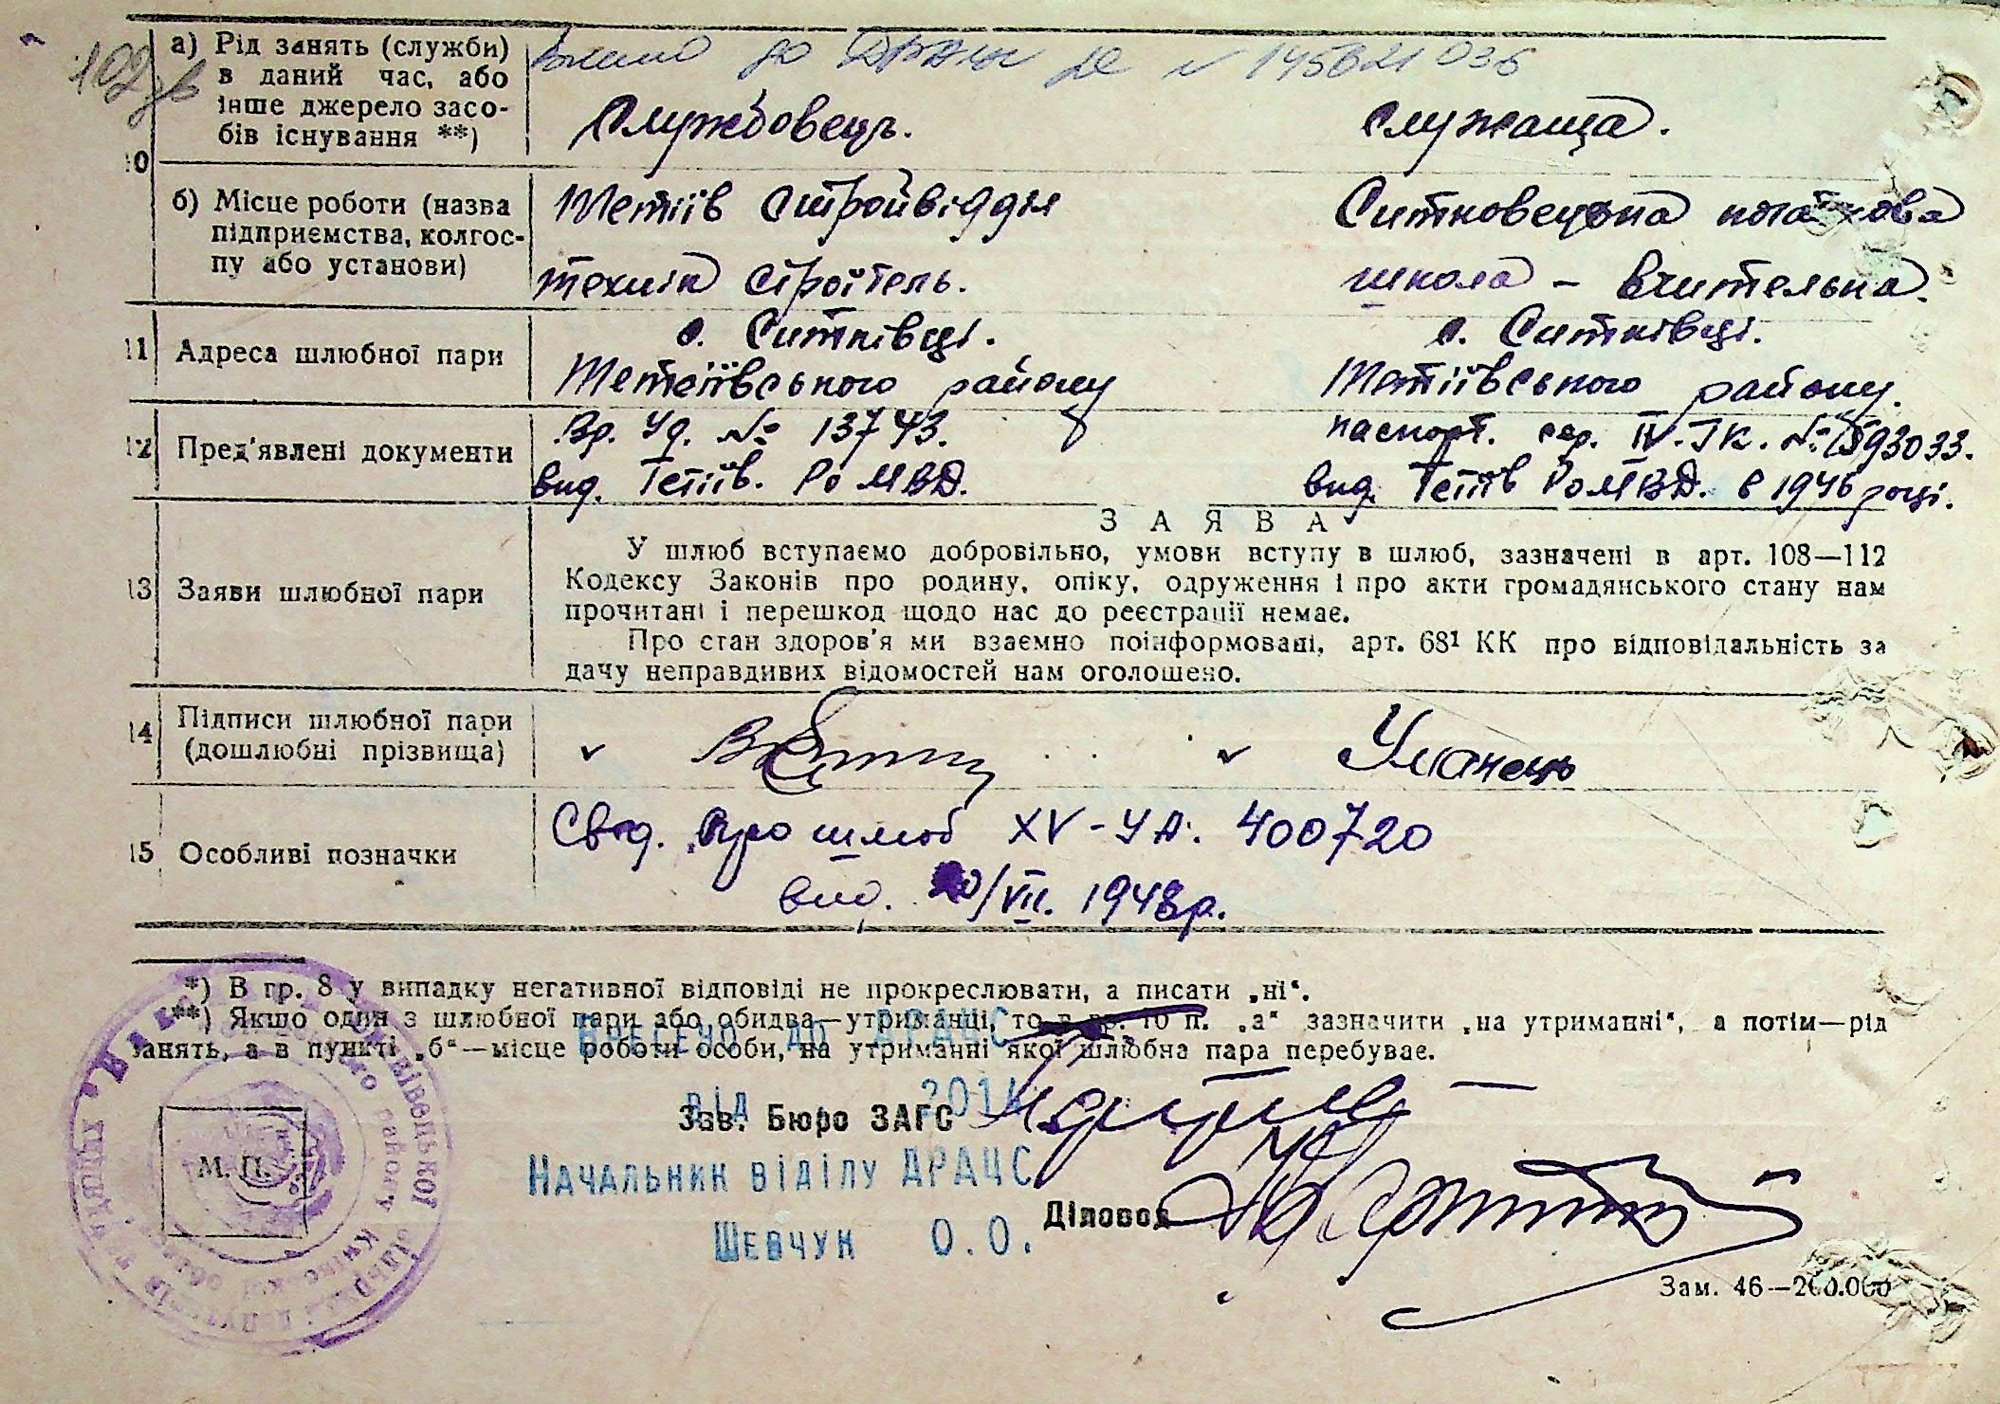 102 зв
10
а) Рід занять (служби)
в даний час, або
інше джерело засо-
бів існування **)
до ДРАЦС № 145621036
Службовець.
служаща.
б) Місце роботи (назва
підприємства, колгос-
пу або установи)
Тетіїв стройвідділ
технік строїтель.
Ситковецька початкова
школа – вчителька.
11 Адреса шлюбної пари
с. Ситківці.
Тетіївського району
с. Ситківці.
Тетіївського району.
12 Пред'явлені документи
Вр. Уд. № 13743.
вид. Тетіїв. Ро МВД.
паспорт. сер. IV-ЈК. № 593033.
вид. Тетіїв Ро МВД. в 1946 році.
13 Заяви шлюбної пари
ЗАЯВА
У шлюб вступаємо добровільно, умови вступу в шлюб, зазначені в арт. 108—112
Кодексу Законів про родину, опіку, одруження і про акти громадянського стану нам
прочитані і перешкод щодо нас до реєстрації немає.
Про стан здоров'я ми взаємно поінформовані, арт. 68¹ КК про відповідальність за
дачу неправдивих відомостей нам оголошено.
14 Підписи шлюбної пари
(дошлюбні прізвища)
Уманець
15 Особливі позначки
Свід. про шлюб XV-УА. 400720
вид. /VII. 1948 р.
*) В гр. 8 у випадку негативної відповіді не прокреслювати, а писати „ні“.
**) Якщо один з шлюбної пари або обидва—утриманці, то в гр. 10 п. „а“ зазначити „на утриманні“, а потім—рід
занять, а в пункті „б“—місце роботи особи, на утриманні якої шлюбна пара перебуває.
Внесено до ДРАЦС
від 2014
Зав. Бюро ЗАГС
Начальник віділу ДРАЦС
Шевчук О.О.
Діловод
М. П.
Зам. 46—200.000